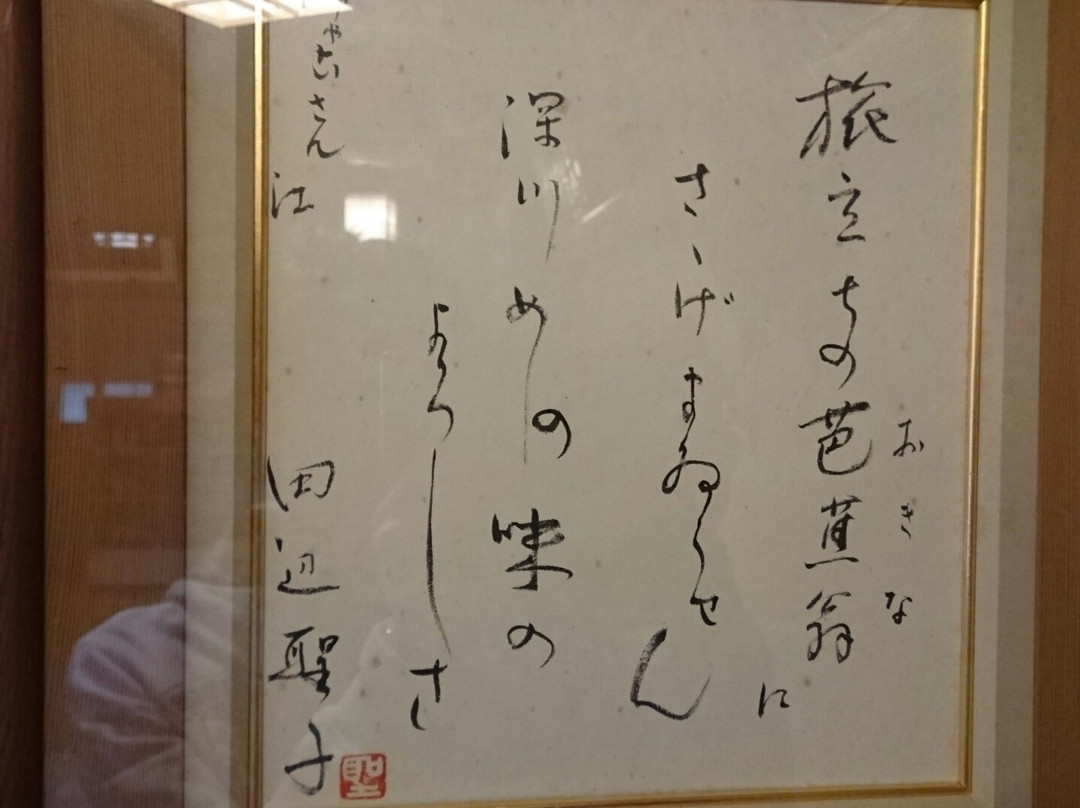 旅立ちの芭蕉翁に
おきな
さゝげまゐらせん
深川めしの味の
よろしさ
さん江
田辺聖子
聖